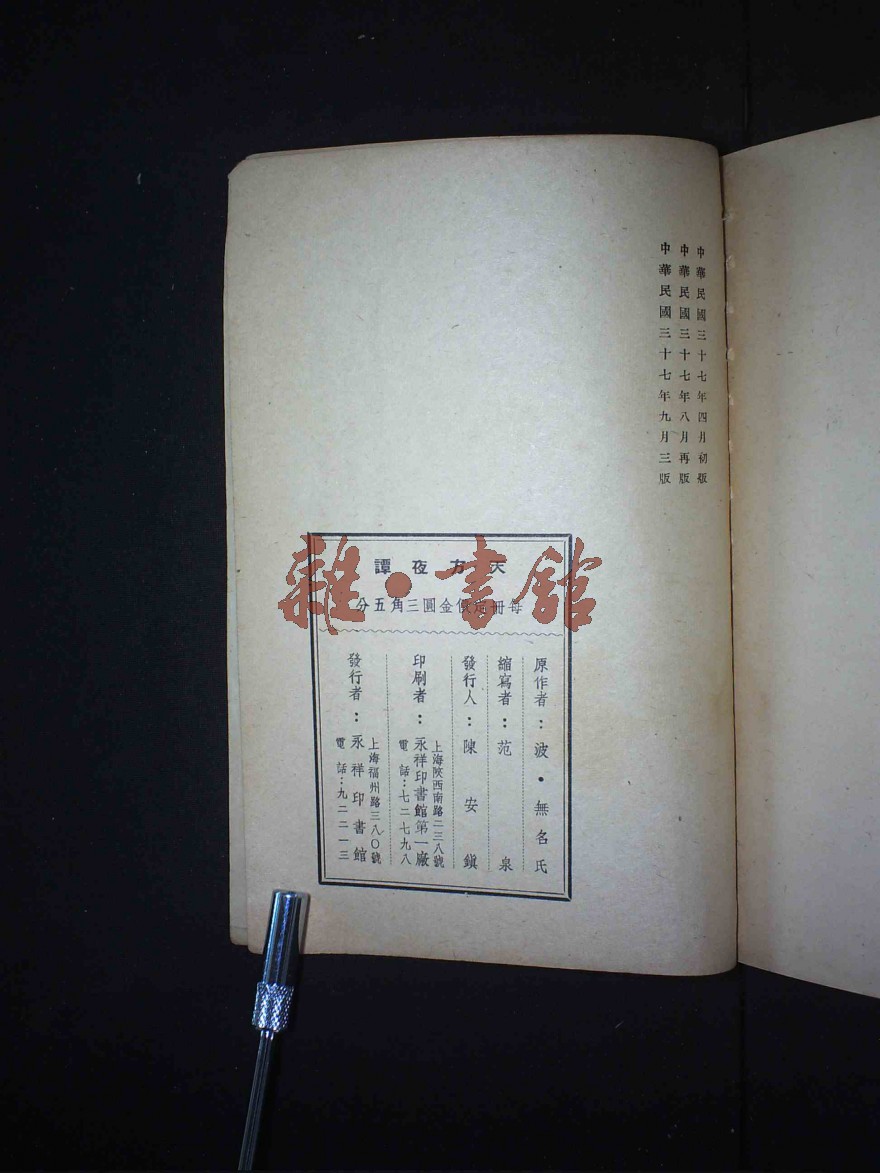 中華民國三十七年四月初版
中華民國三十七年八月再版
中華民國三十七年九月三版
天方夜譚
每冊定價金圓三角五分
原作者：波·無名氏
縮寫者：范泉
發行人：陳安鎭
印刷者：永祥印書館第一廠
上海陝西南路二三八號
電話：七二七九八
發行者：永祥印書館
上海福州路三八〇號
電話：九二二一三
雜·書館